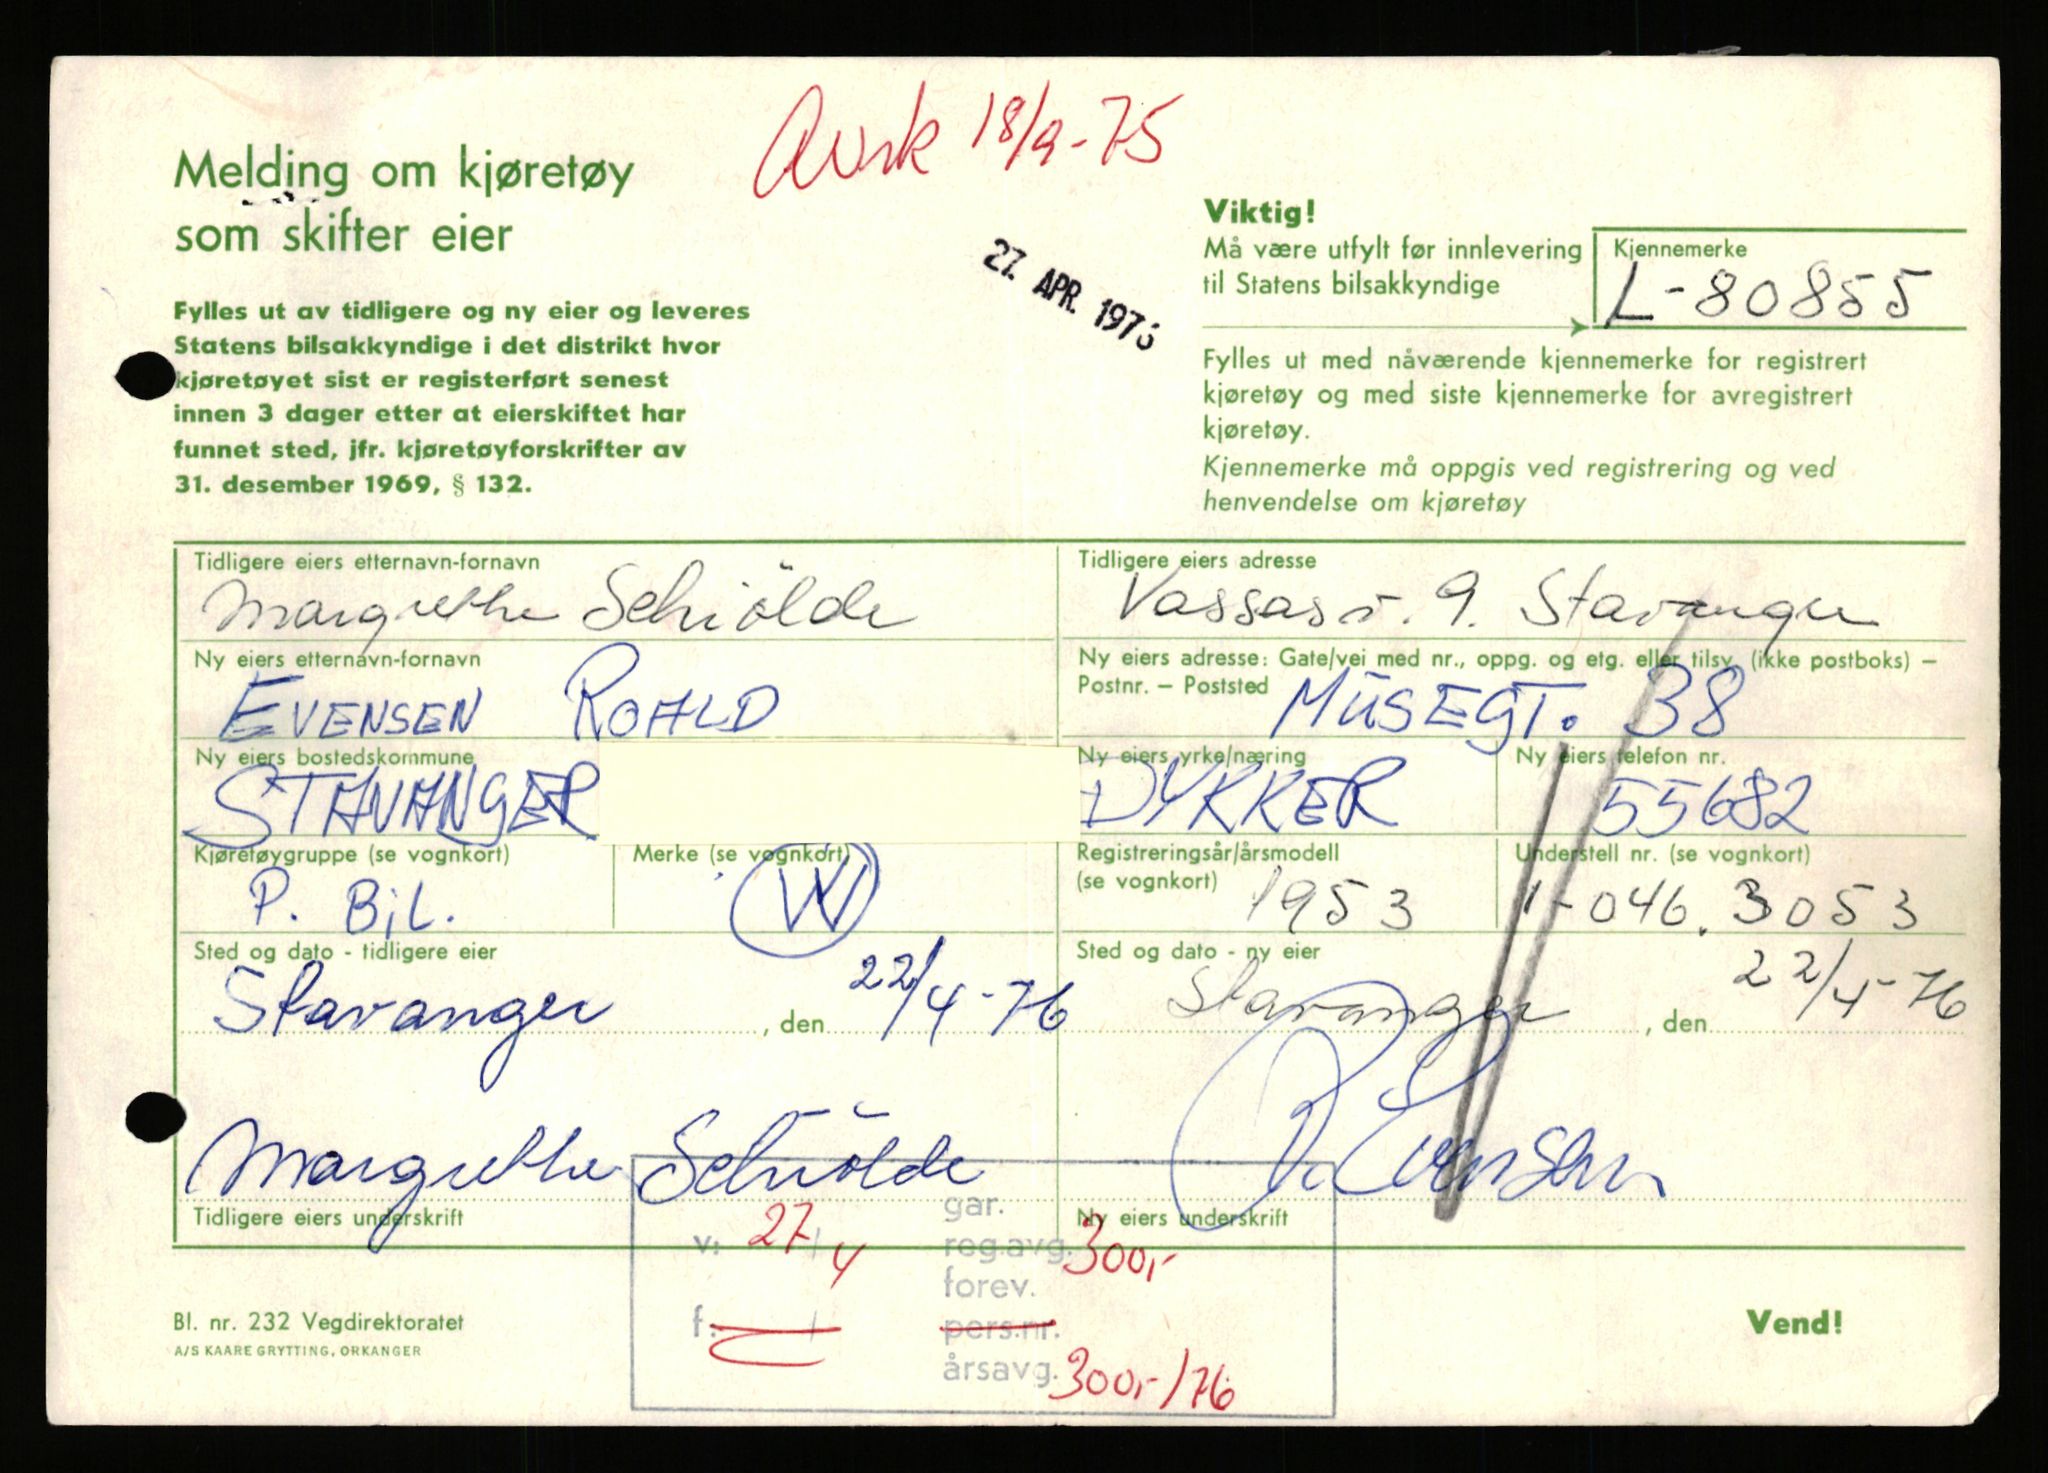 Avsk 18/9-75
Melding om kjøretøy
som skifter eier
27. APR. 1976
Viktig!
Må være utfylt før innlevering
til Statens bilsakkyndige
Kjennemerke
L-80855
Fylles ut av tidligere og ny eier og leveres
Statens bilsakkyndige i det distrikt hvor
kjøretøyet sist er registerført senest
innen 3 dager etter at eierskiftet har
funnet sted, jfr. kjøretøyforskrifter av
31. desember 1969, § 132.
Fylles ut med nåværende kjennemerke for registrert
kjøretøy og med siste kjennemerke for avregistrert
kjøretøy.
Kjennemerke må oppgis ved registrering og ved
henvendelse om kjøretøy
Tidligere eiers etternavn-fornavn
Margrethe Schiölde
Tidligere eiers adresse
Vassasv. 9. Stavanger
Ny eiers etternavn-fornavn
EVENSEN ROALD
Ny eiers adresse: Gate/vei med nr., oppg. og etg. eller tilsv. (ikke postboks) –
Postnr. – Poststed
MUSEGT. 38
Ny eiers bostedskommune
STAVANGER
Ny eiers yrke/næring
DYKKER
Ny eiers telefon nr.
55682
Kjøretøygruppe (se vognkort)
P. BiL.
Merke (se vognkort)
VW
Registreringsår/årsmodell
(se vognkort)
1953
Understell nr. (se vognkort)
1-046.3053
Sted og dato - tidligere eier
Stavanger, den 22/4-76
Sted og dato - ny eier
Stavanger, den 22/4-76
Margrethe Schiölde
R. Evensen
Tidligere eiers underskrift
Ny eiers underskrift
v: 27/4
gar.
reg.avg. 300,-
forev.
f:
pers.nr.
årsavg. 300,-/76
Bl. nr. 232 Vegdirektoratet
A/S KAARE GRYTTING, ORKANGER
Vend!